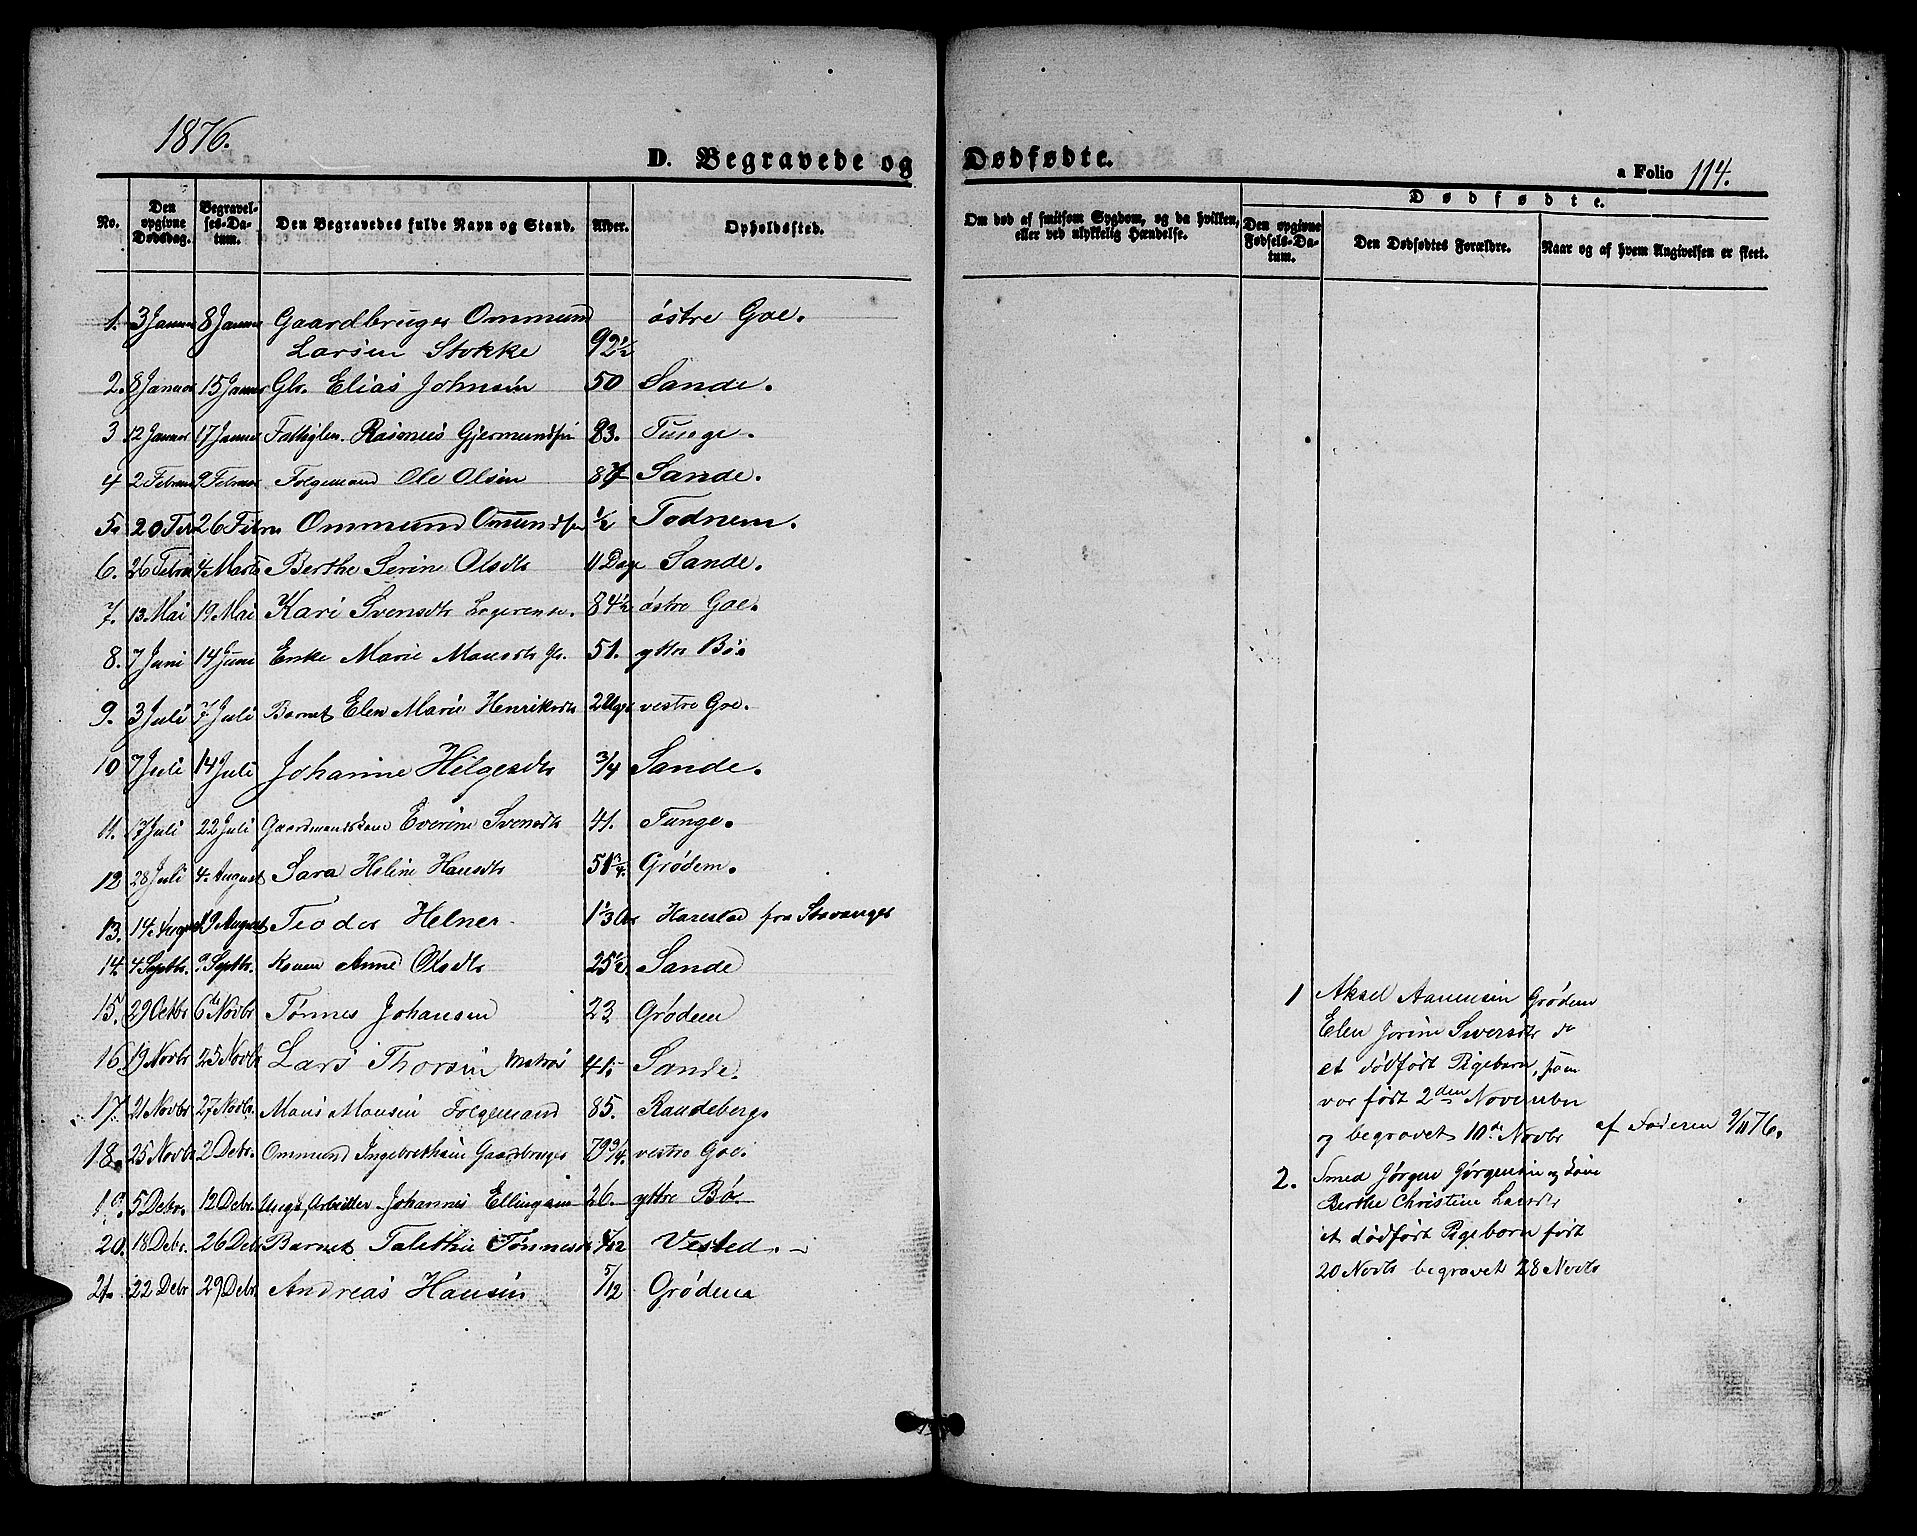 1876.
D. Begravede og Dødfødte.
a Folio 114.
No. Den opgivne Dødsdag. Begravelses-Datum. Den Begravedes fulde Navn og Stand. Alder. Opholdssted. Om død af smitsom Sygdom, og da hvilken, eller ved ulykkelig Hændelse. Dødfødte. Den opgivne Fødsels-Datum. Den Dødfødtes Forældre. Naar og af hvem Angivelsen er skeet.
1. 3 Januar 8 Januar Gaardbruger Ommund østre Goe.
Larsen Stokke 92½
2. 8 Januar 15 Januar Gbr. Elias Johnsen 50 Sande.
3 12 Januar 17 Januar Rasmus Gjermundsen 83. Tunge.
4 2 Februar 9 Februar Folgemand Ole Olsen 87 Sande.
5. 20 Febr 26 Febru Ommund Omundsen ½ Todnem.
6. 26 Febru 4 Marts Berthe Serine Olsdtr 11 Dage Sande.
7. 13 Mai 19 Mai Kari Svensdtr 84½ østre Goe.
8. 7 Juni 14 Juni Enke Marie Mausdtr 51. yttre Bø.
9. 3 Juli 7 Juli Barnet Elen Marie Henriksdtr 2 Uger vestre Goe.
10 7 Juli 14 Juli Johanne Helgesdtr 3/4 Sande.
11. 17 Juli 22 Juli Gaardmandskone Everine Svensdtr 41. Tunge.
12 28 Juli 4. August Sara Heline Hansdtr 51 3/4. Grødem.
13. 14 August 19 August Teodor Helner 1⅓ Aar Harestad fra Stavanger
14. 4 Septbr. 9 Septbr. Konen Anne Olsdtr 25½ Sande
15. 29 Octbr 6de Novbr Tønnes Johansen 23. Grødem
16 19 Novbr 25 Novbr Lars Thorsen Matros 41. Sande.
17. 21 Novbr 27 Novbr. Maus Mausen Folgemand 85. Randeberg
18. 25 Novbr 2 Debr. Ommund Ingebrethsen Gaardbruger 79 3/4. vestre Goe.
19. 5 Debr. 12 Debr. Ungk, Arbeider Johannes Ellingsen 26. yttre Bø
20. 18 Debr. 26 Debr Barnet Talethe Tønnesdtr /12 Vested.
21. 22 Debr 29 Debr. Andreas Hansen 5/12 Grødem
1 Aksel Aanensen Grødem
Elen Jorine Siversdtr do
et dødfødt Pigebarn, som
var født 2den November
og begravet 10de Novbr af Faderen 9/11 76.
2. Smed Jørgen Jørgensen og Kone
Berthe Christine Larsdtr
et dødfødt Pigebarn født
20 Novbr begravet 28 Novbr